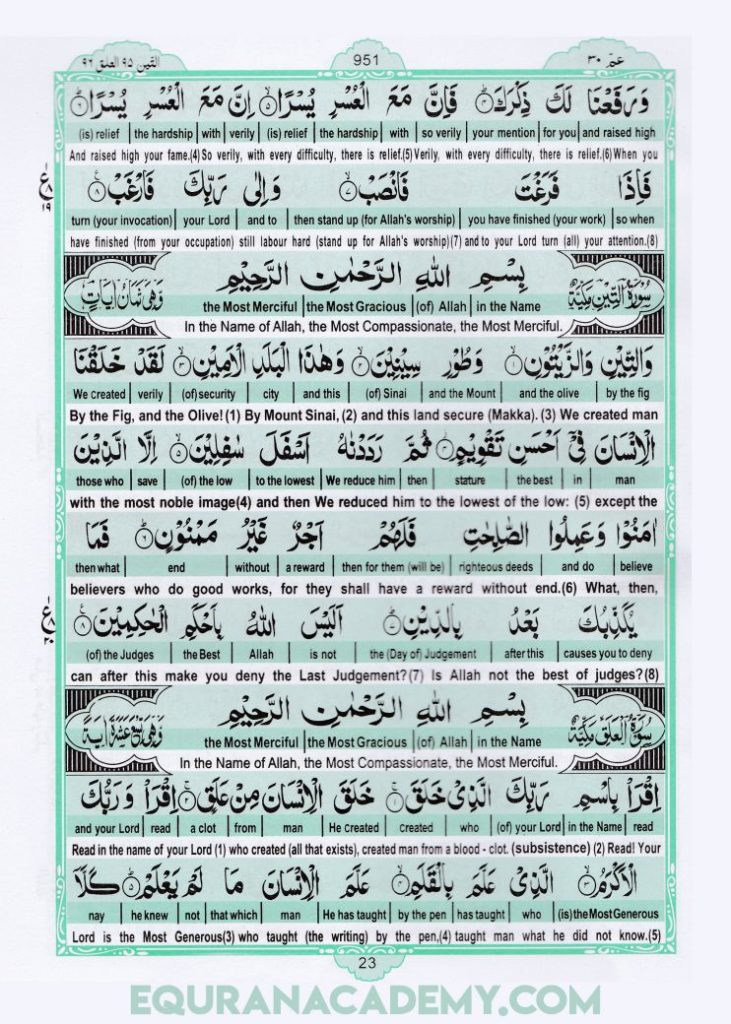 التين ٩٥ العلق ٩٦ 951 عمّ ٣٠
وَرَفَعْنَا لَكَ ذِكْرَكَ ۝٤ فَاِنَّ مَعَ الْعُسْرِ يُسْرًا ۝٥ اِنَّ مَعَ الْعُسْرِ يُسْرًا ۝٦
(is) relief | the hardship | with | verily | (is) relief | the hardship | with | so verily | your mention | for you | and raised high
And raised high your fame.(4) So verily, with every difficulty, there is relief.(5) Verily, with every difficulty, there is relief.(6) When you
فَاِذَا فَرَغْتَ فَانْصَبْ ۝٧ وَاِلٰى رَبِّكَ فَارْغَبْ ۝٨
turn (your invocation) | your Lord | and to | then stand up (for Allah's worship) | you have finished (your work) | so when
have finished (from your occupation) still labour hard (stand up for Allah's worship)(7) and to your Lord turn (all) your attention.(8)
سُوْرَةُ التِّيْنِ مَكِّيَّةٌ بِسْمِ اللهِ الرَّحْمٰنِ الرَّحِيْمِ وَهِىَ ثَمَانُ اٰيَاتٍ
the Most Merciful | the Most Gracious | (of) Allah | in the Name
In the Name of Allah, the Most Compassionate, the Most Merciful.
وَالتِّيْنِ وَالزَّيْتُوْنِ ۝١ وَطُوْرِ سِيْنِيْنَ ۝٢ وَهٰذَا الْبَلَدِ الْاَمِيْنِ ۝٣ لَقَدْ خَلَقْنَا
We created | verily | (of) security | city | and this | (of) Sinai | and the Mount | and the olive | by the fig
By the Fig, and the Olive! (1) By Mount Sinai, (2) and this land secure (Makka). (3) We created man
الْاِنْسَانَ فِىْٓ اَحْسَنِ تَقْوِيْمٍ ۝٤ ثُمَّ رَدَدْنٰهُ اَسْفَلَ سٰفِلِيْنَ ۝٥ اِلَّا الَّذِيْنَ
those who | save | (of) the low | to the lowest | We reduce him | then | stature | the best | in | man
with the most noble image(4) and then We reduced him to the lowest of the low: (5) except the
اٰمَنُوْا وَعَمِلُوا الصّٰلِحٰتِ فَلَهُمْ اَجْرٌ غَيْرُ مَمْنُوْنٍ ۝٦ فَمَا
then what | end | without | a reward | then for them (will be) | righteous deeds | and do | believe
believers who do good works, for they shall have a reward without end.(6) What, then,
يُكَذِّبُكَ بَعْدُ بِالدِّيْنِ ۝٧ اَلَيْسَ اللهُ بِاَحْكَمِ الْحٰكِمِيْنَ ۝٨
(of) the Judges | the Best | Allah | is not | the (Day of) Judgement | after this | causes you to deny
can after this make you deny the Last Judgement? (7) Is Allah not the best of judges? (8)
سُوْرَةُ الْعَلَقِ مَكِّيَّةٌ بِسْمِ اللهِ الرَّحْمٰنِ الرَّحِيْمِ وَهِىَ تِسْعَ عَشَرَةَ اٰيَةً
the Most Merciful | the Most Gracious | (of) Allah | in the Name
In the Name of Allah, the Most Compassionate, the Most Merciful.
اِقْرَاْ بِاسْمِ رَبِّكَ الَّذِىْ خَلَقَ ۝١ خَلَقَ الْاِنْسَانَ مِنْ عَلَقٍ ۝٢ اِقْرَاْ وَرَبُّكَ
and your Lord | read | a clot | from | man | He created | created | who | (of) your Lord | in the Name | read
Read in the name of your Lord (1) who created (all that exists), created man from a blood - clot. (subsistence) (2) Read! Your
الْاَكْرَمُ ۝٣ الَّذِىْ عَلَّمَ بِالْقَلَمِ ۝٤ عَلَّمَ الْاِنْسَانَ مَا لَمْ يَعْلَمْ ۝٥ كَلَّآ
nay | he knew | not | that which | man | He has taught | by the pen | has taught | who | (is) the Most Generous
Lord is the Most Generous(3) who taught (the writing) by the pen,(4) taught man what he did not know.(5)
23
EQURANACADEMY.COM